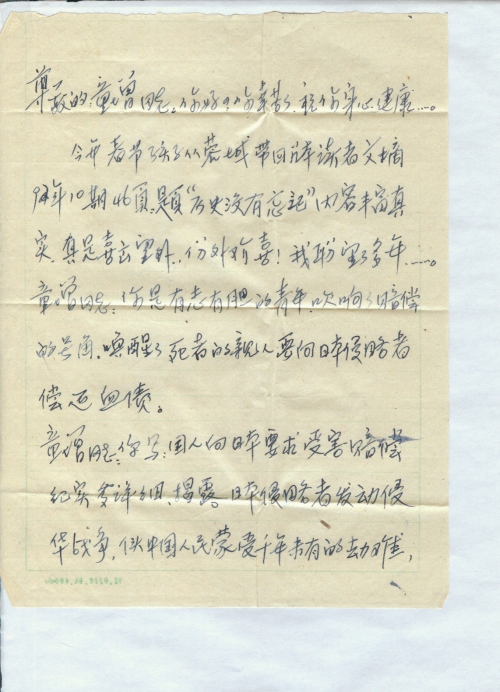 尊敬的童增同志：你好！你辛苦了，祝你身心健康……。
今年春节孩子从蓉城带回一本读者文摘
92年10期46页，题"历史没有忘记"内容丰富真
实，真是喜出望外，份外欢喜！我盼望多年……。
童增同志：你是有志有胆的青年，吹响了赔偿
的号角，唤醒了死者的亲人要向日本侵略者
偿还血债。
童增同志：你写：国人向日本要求受害赔偿
纪实 详细，揭露日本侵略者发动侵
华战争，使中国人民蒙受千年未有的劫难，